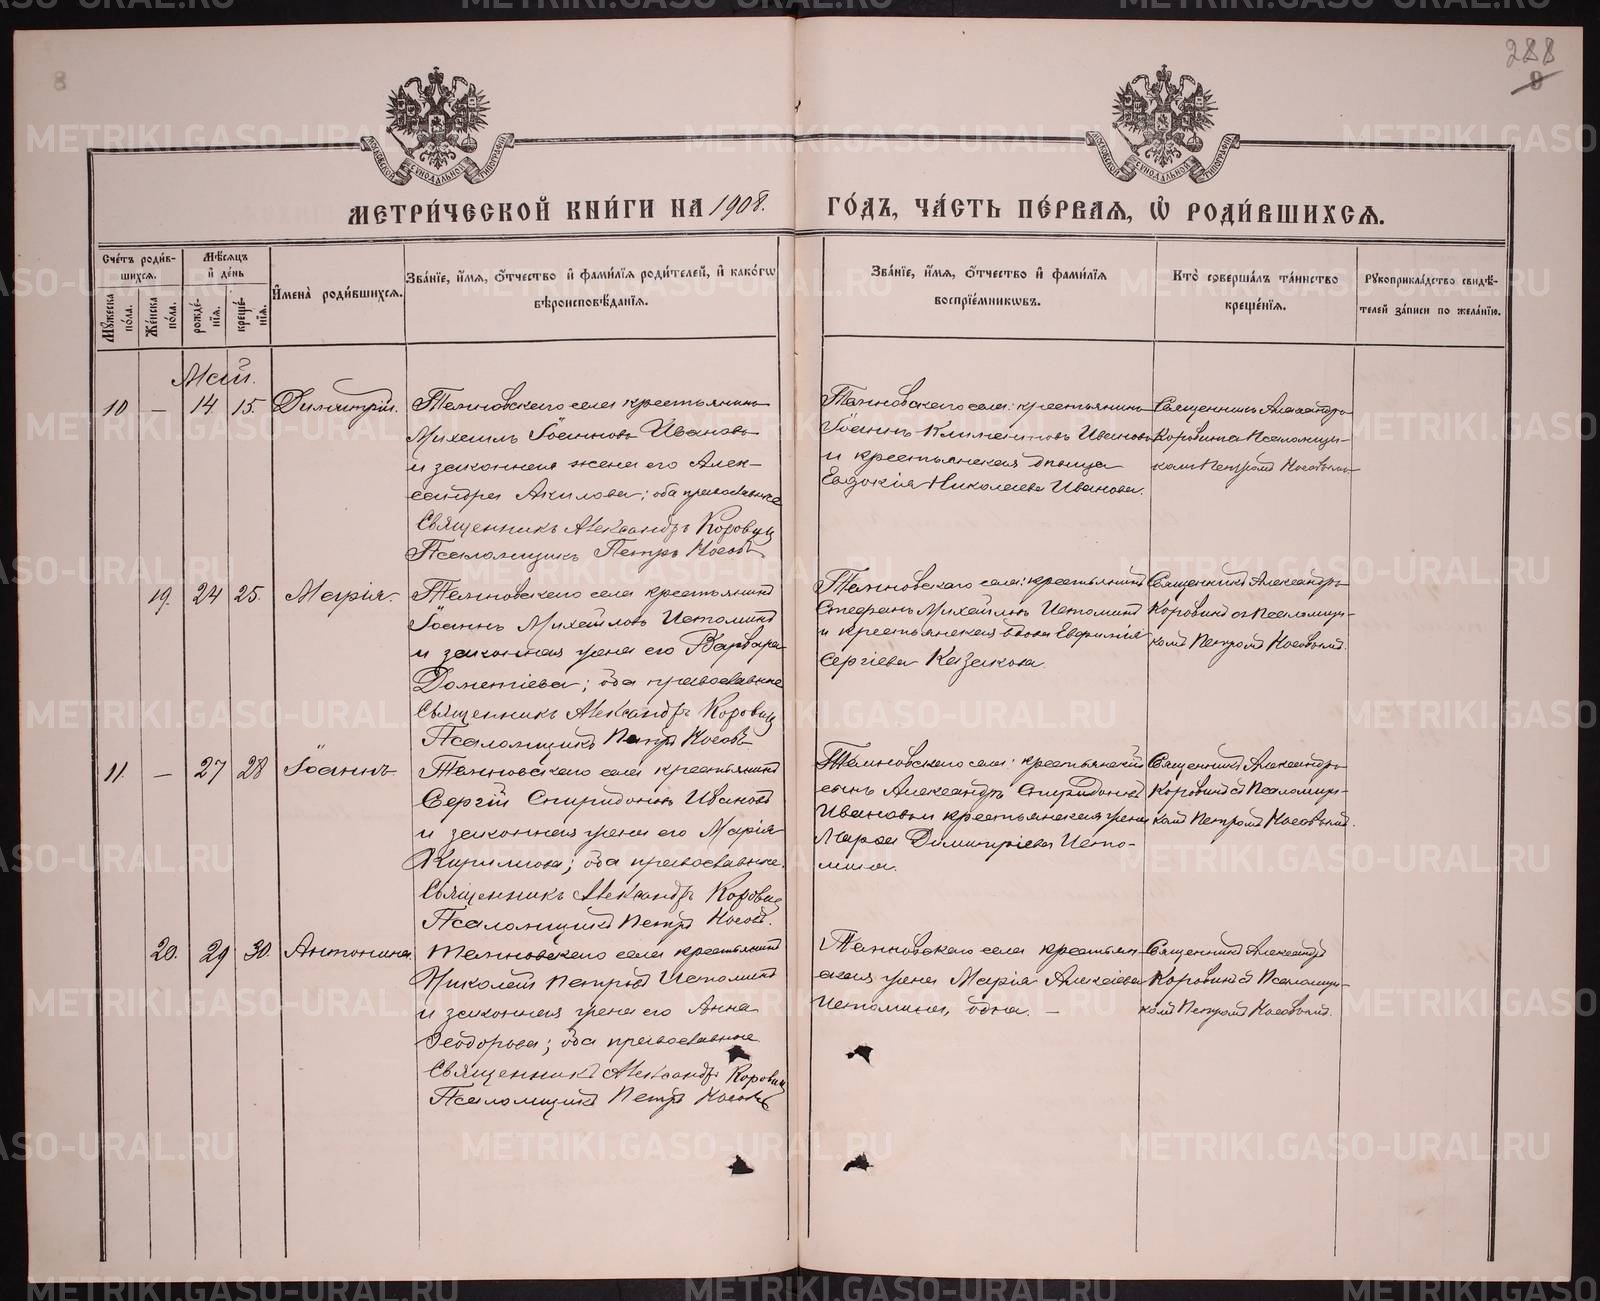 8
288
8
МОСКОВСКОЙ СѴНОДАЛЬНОЙ ТИПОГРАФІИ
МОСКОВСКОЙ СѴНОДАЛЬНОЙ ТИПОГРАФІИ
МЕТРИ́ЧЕСКОЙ КНИ́ГИ НА 1908.
ГО́ДЪ, ЧА́СТЬ ПЕ́РВАЯ, Ѡ҆ РОДИ́ВШИХСѦ.
Сче́тъ роди́в-
шихсѧ.
Мꙋ́жеска по́ла.
Же́нска по́ла.
Мѣ́сѧцъ
и҆ де́нь
рожде́-
нїѧ.
креще́-
нїѧ.
И҆мена̀ роди́вшихсѧ.
Зва́нїе, и҆́мѧ, ѻ҆́тчество и҆ фами́лїѧ роди́телей, и҆ како́гѡ
вѣроисповѣ́данїѧ.
Зва́нїе, и҆́мѧ, ѻ҆́тчество и҆ фами́лїѧ
воспрїе́мникѡвъ.
Кто̀ соверша́лъ та́инство
креще́нїѧ.
Рꙋкоприкла́дство свидѣ́-
телей за́писи по жела́нїю.
Май.
10 — 14 15. Димитрій.
Темновскаго села крестьянинъ
Михаилъ Іоанновъ Ивановъ
и законная жена его Алек-
сандра Акилова; оба православные
Священникъ Александръ Коровин
Псаломщикъ Петръ Косовъ
Темновскаго села: крестьянинъ
Іоаннъ Климентовъ Ивановъ
и крестьянская дѣвица
Евдокія Николаева Иванова.
Священникъ Александръ
Коровинъ Псаломщи-
комъ Петромъ Косовымъ
19. 24 25. Марія.
Темновскаго села крестьянинъ
Іоаннъ Михайловъ Истоминъ
и законная жена его Варвара
Дометіева; оба православные
Священникъ Александръ Коровин
Псаломщикъ Петръ Косовъ
Темновскаго села: крестьянинъ
Стефанъ Михайловъ Истоминъ
и крестьянская вдова Евфимія
Сергіева Казакова.
Священникъ Александръ
Коровинъ съ Псаломщи-
комъ Петромъ Косовымъ.
11. — 27 28 Іоаннъ
Темновскаго села крестьянинъ
Сергій Спиридоновъ Ивановъ
и законная жена его Марія
Кирилова; оба православные.
Священникъ Александръ Коровин
Псаломщикъ Петръ Косовъ.
Темновскаго села: крестьянскій
сынъ Александръ Спиридоновъ
Ивановъ и крестьянская жена
Марѳа Димитріева Исто-
мина.
Священникъ Александръ
Коровинъ съ Псаломщи-
комъ Петромъ Косовымъ.
20. 29 30. Антонина
Темновскаго села крестьянинъ
Николай Петровъ Истоминъ
и законная жена его Анна
Ѳеодорова; оба православные
Священникъ Александръ Коровин
Псаломщикъ Петръ Косовъ
Темновскаго села крестьян-
ская жена Марія Алексіева
Истомина, одна. —
Священникъ Александръ
Коровинъ съ Псаломщи-
комъ Петромъ Косовымъ.
METRIKI.GASO-URAL.RU